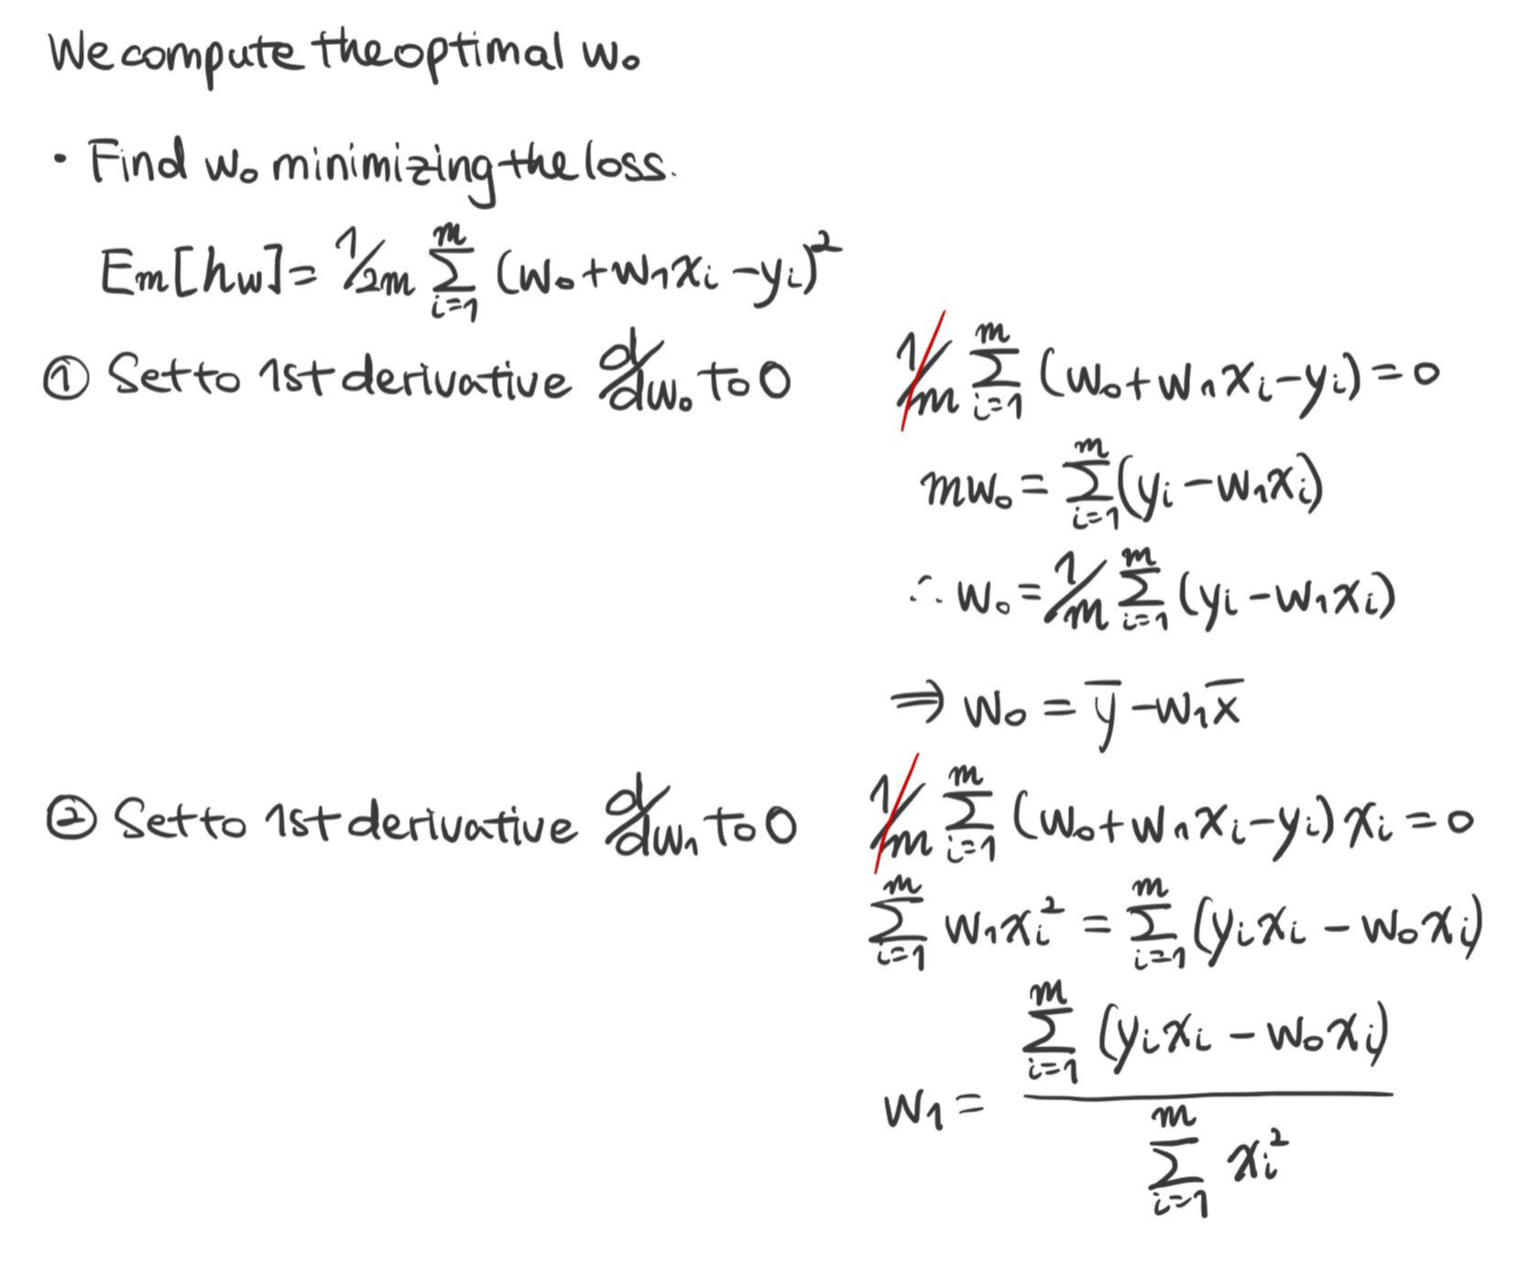 We compute the optimal w₀
• Find w₀ minimizing the loss.
Em[hw] = 1/2m ∑_{i=1}^{m} (w₀+w₁xᵢ-yᵢ)²
① Set to 1st derivative d/dw₀ to 0
1/m ∑_{i=1}^{m} (w₀+w₁xᵢ-yᵢ)=0
mw₀ = ∑_{i=1}^{m} (yᵢ-w₁xᵢ)
∴ w₀ = 1/m ∑_{i=1}^{m} (yᵢ-w₁xᵢ)
⇒ w₀ = y̅-w₁x̅
② Set to 1st derivative d/dw₁ to 0
1/m ∑_{i=1}^{m} (w₀+w₁xᵢ-yᵢ)xᵢ=0
∑_{i=1}^{m} w₁xᵢ² = ∑_{i=1}^{m} (yᵢxᵢ - w₀xᵢ)
w₁ = ∑_{i=1}^{m} (yᵢxᵢ - w₀xᵢ) / ∑_{i=1}^{m} xᵢ²